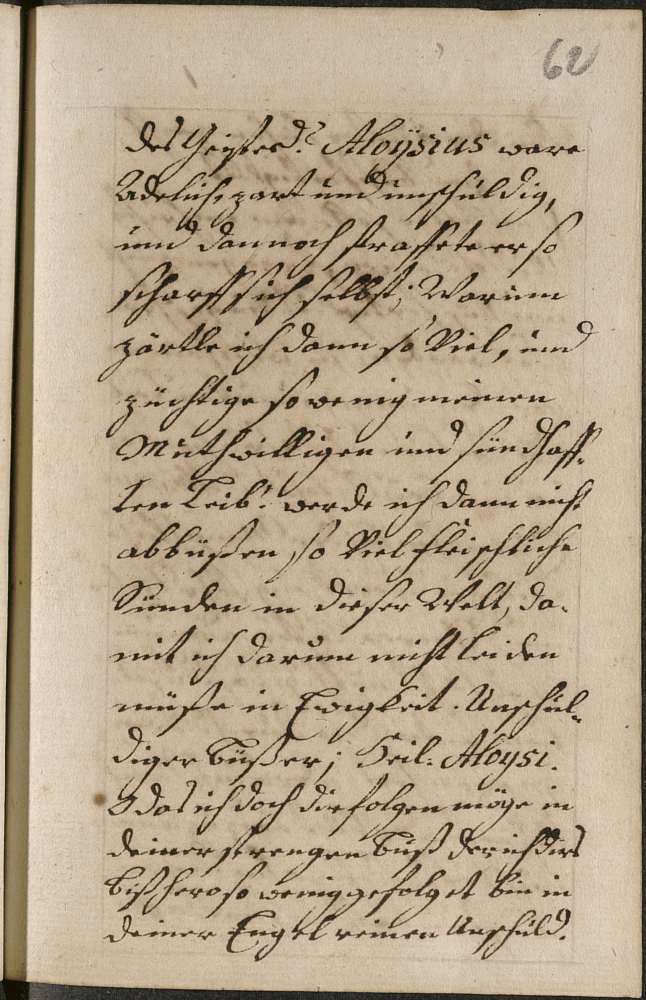 62
des Geistes? Aloÿsius ware
Adelich, zart und unschuldig,
und dannoch straffete er so
scharff sich selbst; Warum
zärtle ich dann so Viel, und
züchtige so wenig meinen
Muthwilligen und sündhaff-
ten Leib? werde ich dann nicht
abbüßen so Viel fleischliche
Sünden in dieser Welt, da-
mit ich darum nicht leiden
müße in Ewigkeit. Unschul-
diger büßer; Heil: Aloysi.
O das ich doch dir folgen möge in
deiner strengen buß der ich dir
bißhero so wenig gefolget bin in
deiner Engel reinen Unschuld.